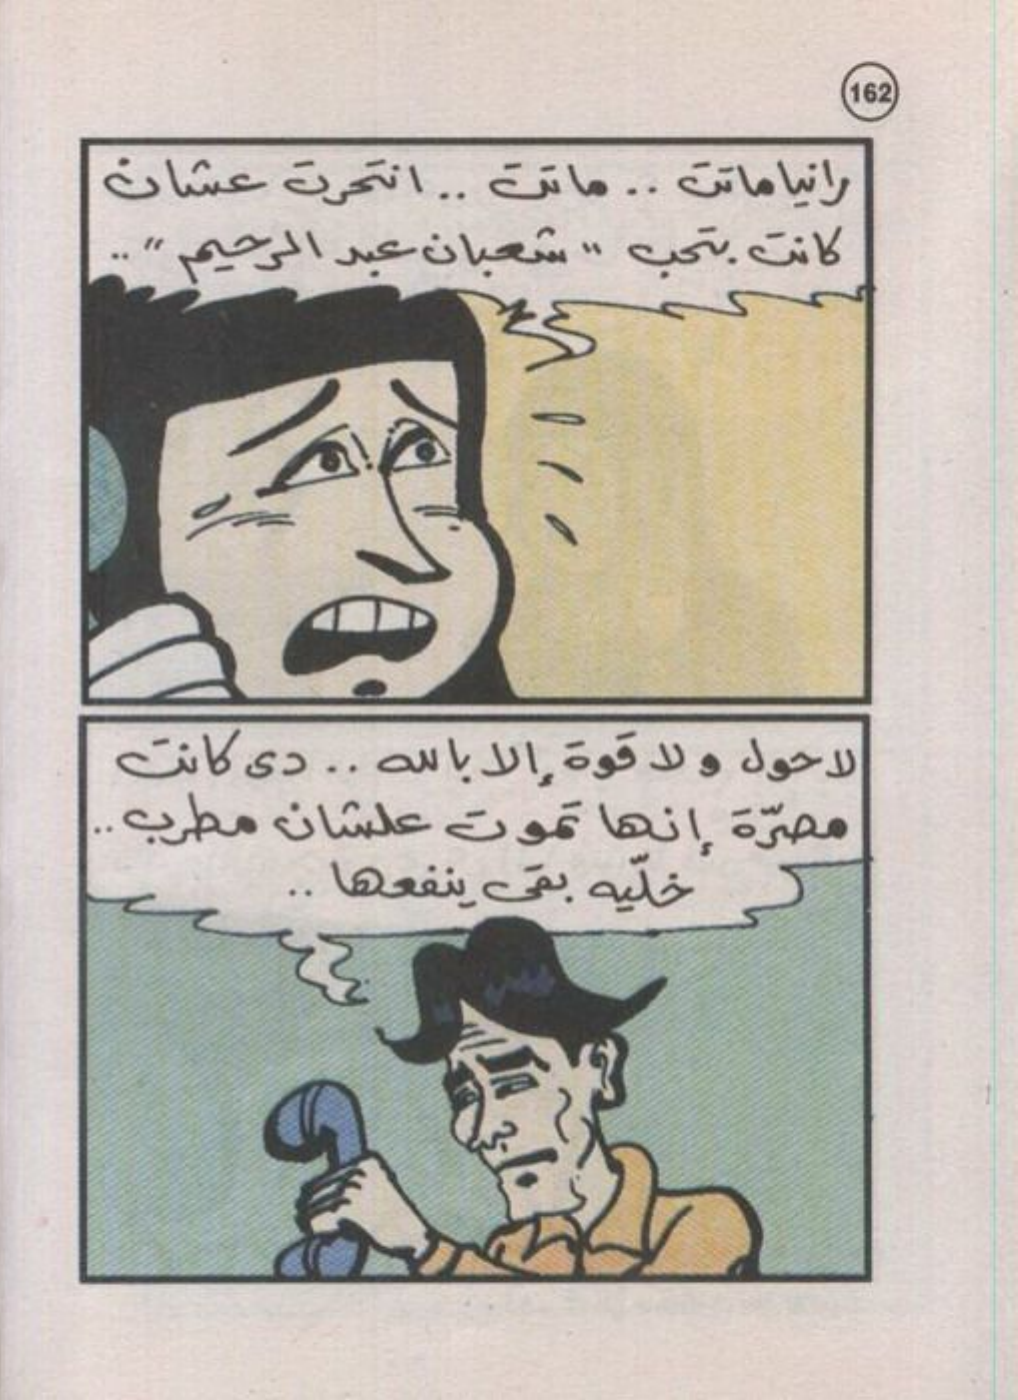 162
رانيا ماتت .. ماتت .. انتحرت عشان
كانت بتحب "شعبان عبد الرحيم" ..
لا حول ولا قوة إلا بالله .. دى كانت
مصرّة إنها تموت علشان مطرب ..
خلّيه بقى ينفعها ..